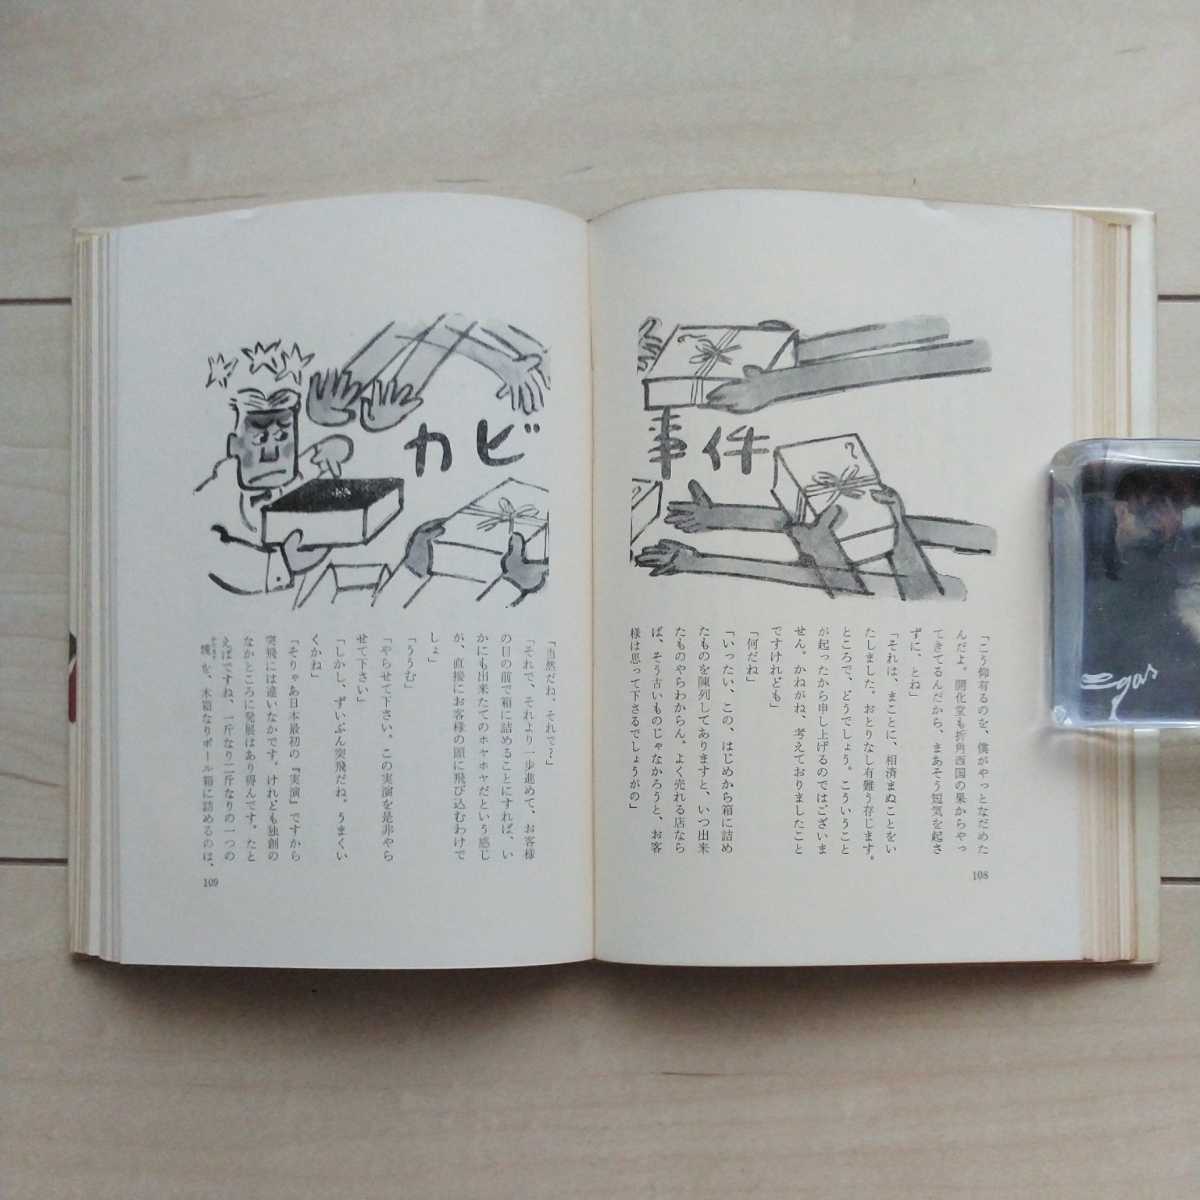 カビ
事件
「こう仰有るのを、僕がやっとなだめた
んだよ。開化堂も折角西国の果からやっ
てきてるんだから、まあそう短気を起さ
ずに、とね」
「それは、まことに、相済まぬことをい
たしました。おとりなし有難う存じます。
ところで、どうでしょう。こういうこと
が起ったから申し上げるのではございま
せん。かねがね、考えておりましたこと
ですけれども」
「何だね」
「いったい、この、はじめから箱に詰め
たものを陳列してありますと、いつ出来
たものやらわからん。よく売れる店なら
ば、そう古いものじゃなかろうと、お客
様は思って下さるでしょうがの」
108
「当然だね、それで?」
「それで、それより一歩進めて、お客様
の目の前で箱に詰めることにすれば、い
かにも出来たてのホヤホヤだという感じ
が、直接にお客様の頭に飛び込むわけで
しょ」
「ううむ」
「やらせて下さい、この実演を是非やら
せて下さい」
「しかし、ずいぶん突飛だね。うまくい
くかね」
「そりゃあ日本最初の『実演』ですから
突飛には違いなかです。けれども独創の
なかところに発展はあり得んです。たと
えばですね、一斤なり二斤なりの一つの
塊を、木箱なりボール箱に詰めるのは、
109
egas